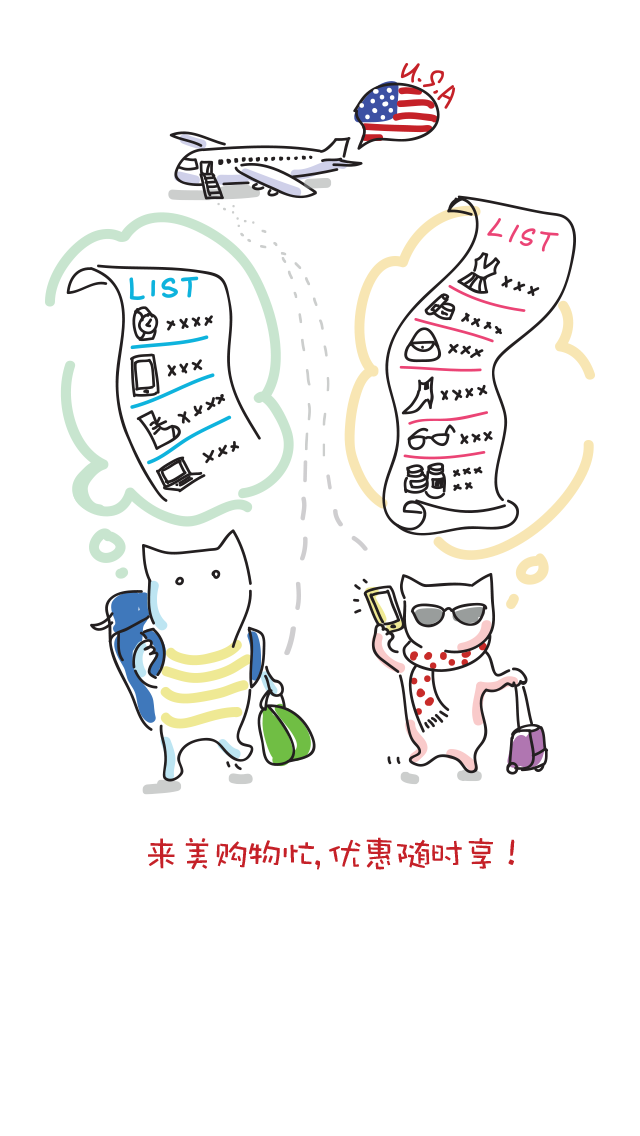 U.S.A
LIST
xxxx
xxx
xxxx
xxx
LIST
xxx
xxxx
xxx
xxxx
xxx
xxx
xx
来美购物忙,优惠随时享!